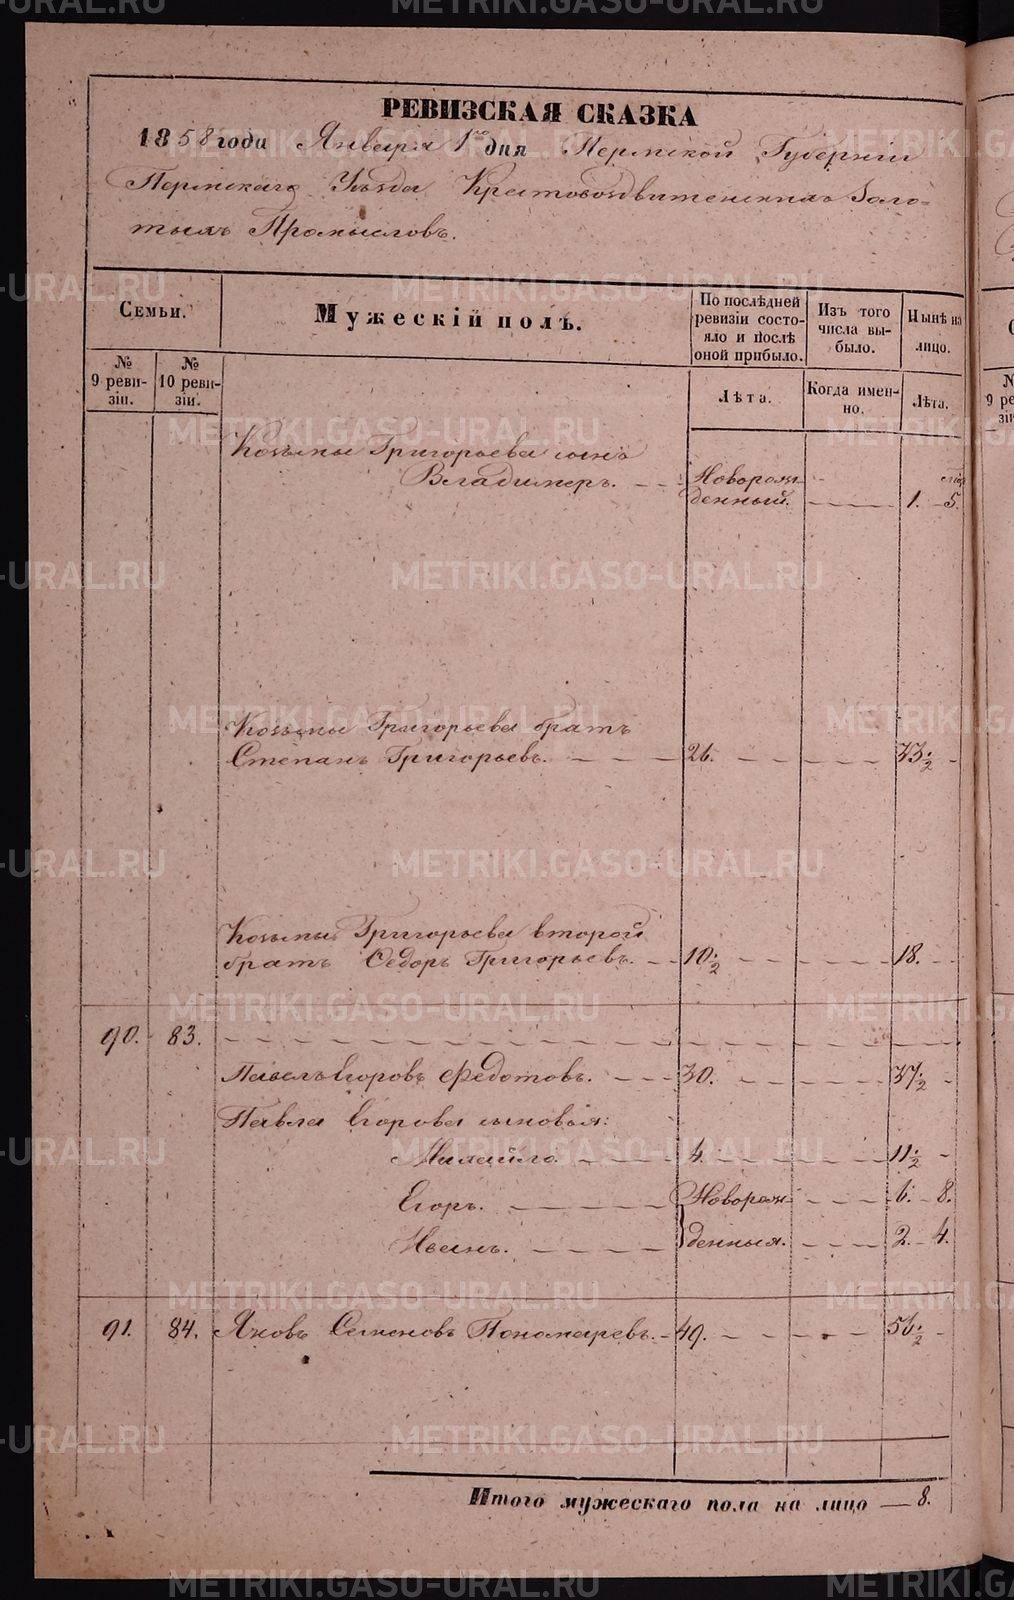 РЕВИЗСКАЯ СКАЗКА
1858 года Января 1го дня Пермской Губернiи
Пермскаго Уѣзда Крестовоздвиженскихъ Золо-
тыхъ Промысловъ.
Семьи.
Мужескiй полъ.
По послѣдней ревизiи состо- яло и послѣ оной прибыло.
Изъ того числа вы- было.
Нынѣ на лицо.
№ 9 реви- зiи.
№ 10 реви- зiи.
Лѣта.
Когда имен- но.
Лѣта.
Козьмы Григорьева сынъ
Владимеръ. Новорож-
денный. 1. 5.
Козьмы Григорьева братъ
Степанъ Григорьевъ. 26. 33½
Козьмы Григорьева второй
братъ Ѳедоръ Григорьевъ. 10½ 18.
90. 83.
Павелъ Егоровъ Федотовъ. 30. 37½
Павла Егорова сыновья:
Михайло. 4. 11½
Егоръ. Новорож- 6. 8.
Иванъ. денныя. 2. 4.
91. 84. Яковъ Семеновъ Пономаревъ. 49. 56½
Итого мужескаго пола на лицо — 8.
METRIKI.GASO-URAL.RU